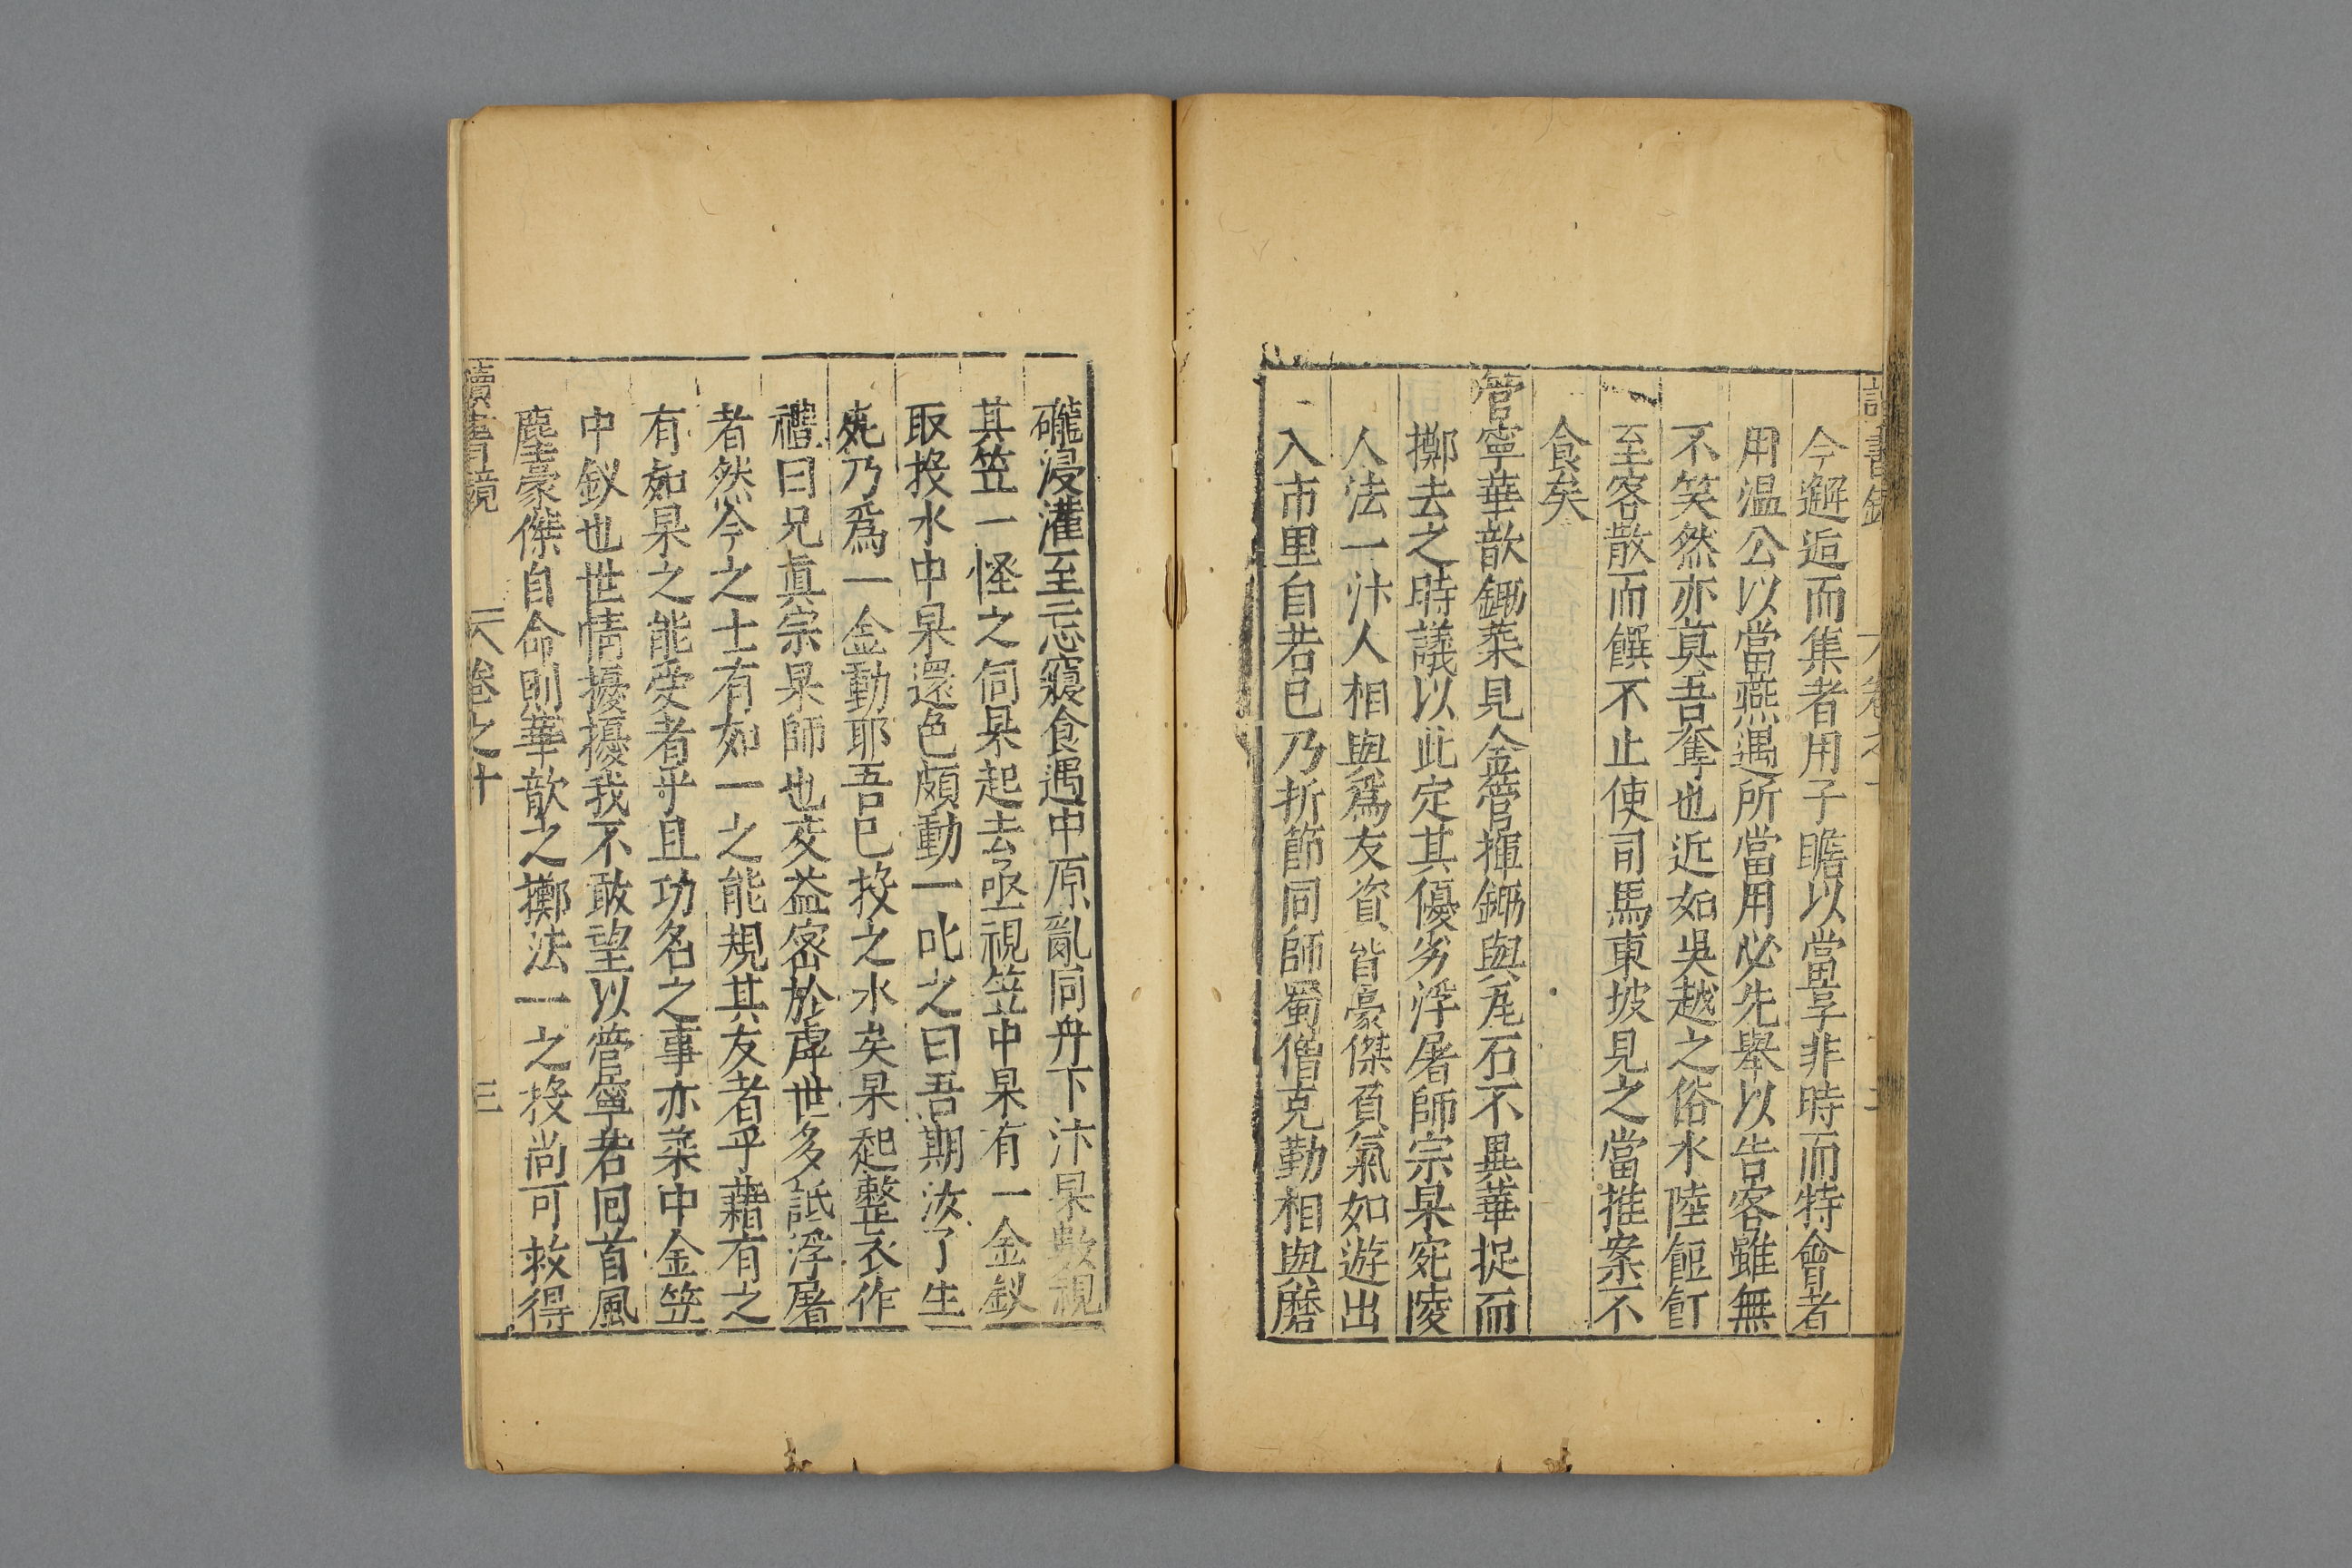 讀書鏡 卷之十
今邂逅而集者用子瞻以當享非時而特會者
用温公以當燕遇所當用必先舉以告客雖無
不笑然亦莫吾奪也近如吳越之俗水陸飣飣
至客散而饌不止使司馬東坡見之當推案不
食矣
管寧華歆鋤菜見金管揮鋤與瓦石不異華捉而
擲去之時議以此定其優劣浮屠師宗杲宛陵
人法一汴人相與爲友資皆豪傑負氣如遊出
入市里自若已乃折節同師蜀僧克勤相與磨
礲浸灌至忘寢食遇中原亂同舟下汴杲數視
其笠一怪之伺杲起去亟視笠中杲有一金釵
取投水中杲還色頗動一叱之曰吾期汝了生
死乃爲一金動耶吾已投之水矣杲起整衣作
禮曰兄眞宗杲師也交益密於虖世多詆浮屠
者然今之士有如一之能規其友者乎藉有之
有如杲之能受者乎且功名之事亦菜中金笠
中釵也世情擾擾我不敢望以管寧若回首風
塵豪傑自命則華歆之擲法一之投尚可救得
讀書鏡 卷之十 三